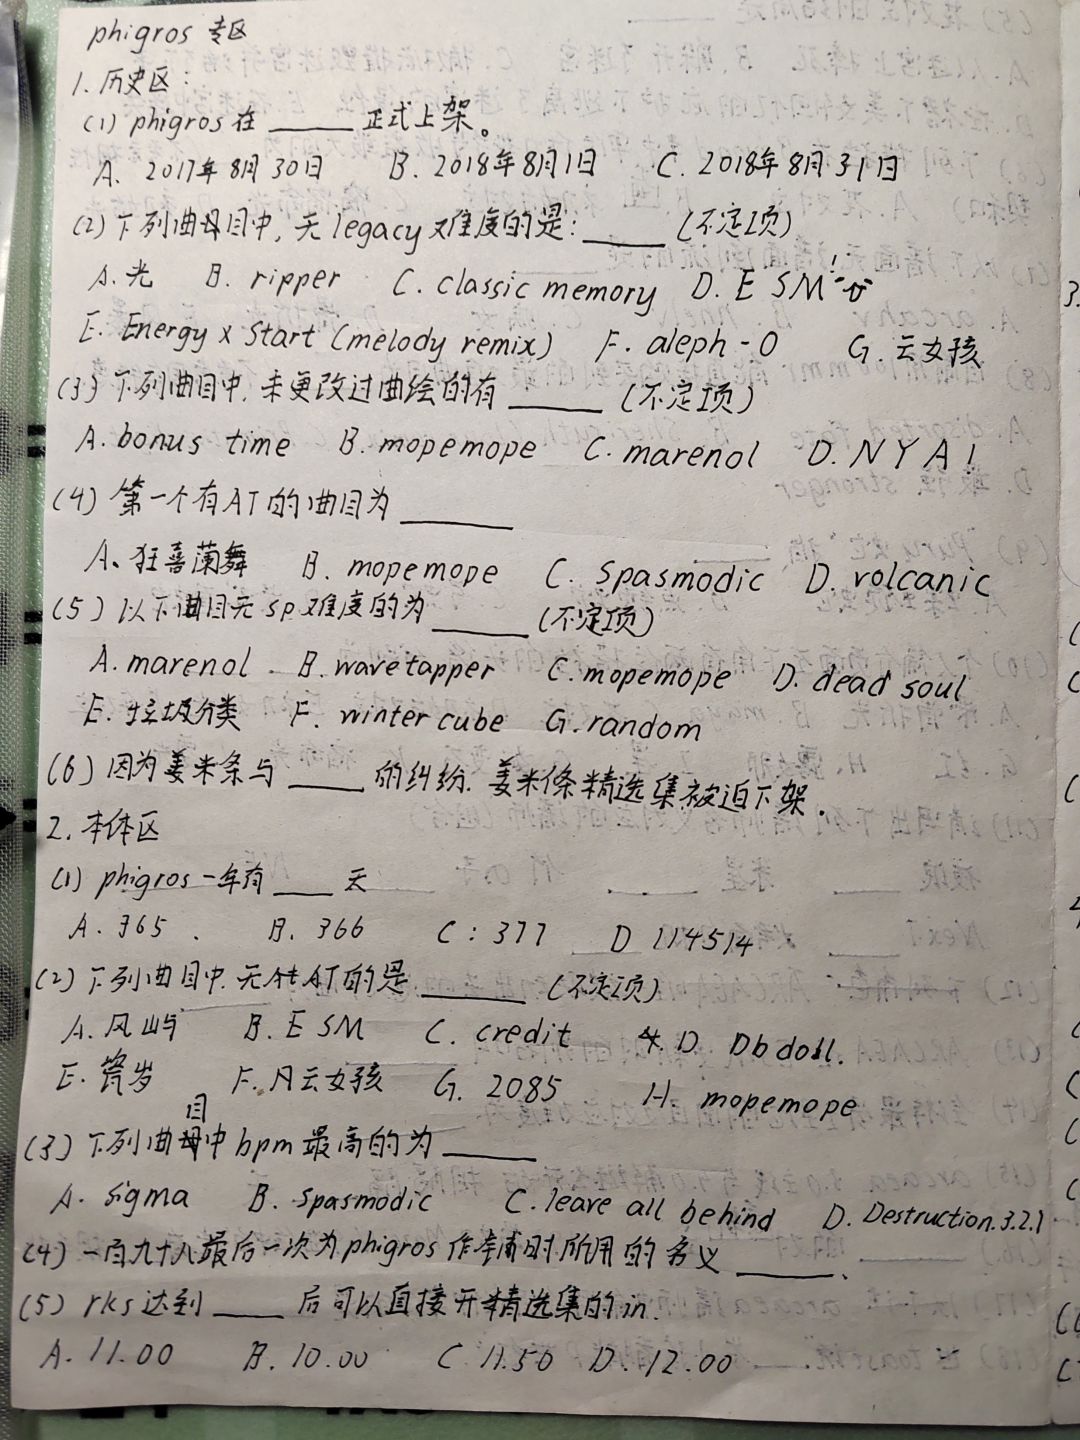 phigros 专区
1. 历史区：
(1) phigros 在 ____ 正式上架。
A. 2017年8月30日 B. 2018年8月1日 C. 2018年8月31日
(2) 下列曲目中, 无 legacy 难度的是: ____ (不定项)
A. 光 B. ripper C. classic memory D. E SM
E. Energy x Start (melody remix) F. aleph-0 G. 云女孩
(3) 下列曲目中, 未更改过曲绘的有 ____ (不定项)
A. bonus time B. mopemope C. marenol D. NYA!
(4) 第一个有AT的曲目为 ____
A. 狂喜蘭舞 B. mopemope C. Spasmodic D. volcanic
(5) 以下曲目无 sp 难度的为 ____ (不定项)
A. marenol B. wavetapper C. mopemope D. dead soul
E. 垃圾分类 F. winter cube G. random
(6) 因为姜米条与 ____ 的纠纷, 姜米條精选集被迫下架.
2. 本体区
(1) phigros 一年有 ____ 天
A. 365 B. 366 C: 377 D 114514
(2) 下列曲目中, 无 AT 的是 ____ (不定项)
A. 风屿 B. E SM C. credit D. Db doll.
E. 箢岁 F. 云女孩 G. 2085 H. mopemope
(3) 下列曲目中 bpm 最高的为 ____
A. sigma B. Spasmodic C. leave all behind D. Destruction.3.2.1
(4) 一百九十八最后一次为 phigros 作铺时所用的名义 ____.
(5) rks 达到 ____ 后可以直接开精选集的 in.
A. 11.00 B. 10.00 C 11.50 D. 12.00